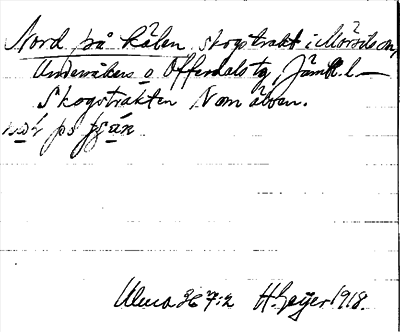 Nord på kölen, skogstrakt i Mörsils sn,
Undersåkers o Offerdals tg, Jämtl. l—
Skogstrakten N om älven.
på
Ulma 367:2 H. Geijer 1918.